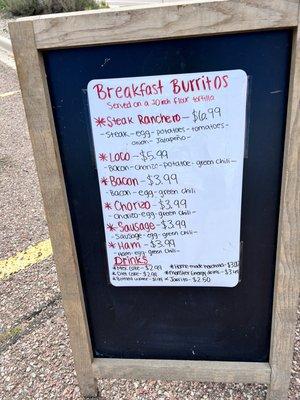 Breakfast Burritos
Served on a 10 inch Flour tortilla
*Steak Ranchero - $6.99
- Steak - egg - potatoes - tomatoes -
onion - Jalapeño -
*Loco - $5.99
- Bacon - chorizo - potatoe - green chili -
*Bacon - $3.99
Bacon - egg - green chili
*Chorizo - $3.99
- Chorizo - egg - green chili -
*Sausage - $3.99
- Sausage - egg - green chili -
*Ham - $3.99
- Ham - egg - green chili -
Drinks
*Mex Coke - $2.99 *Home made
*Diet Coke - $2.99 *Monster Energy drinks -
*Bottled water - *Jarrito - $2.50